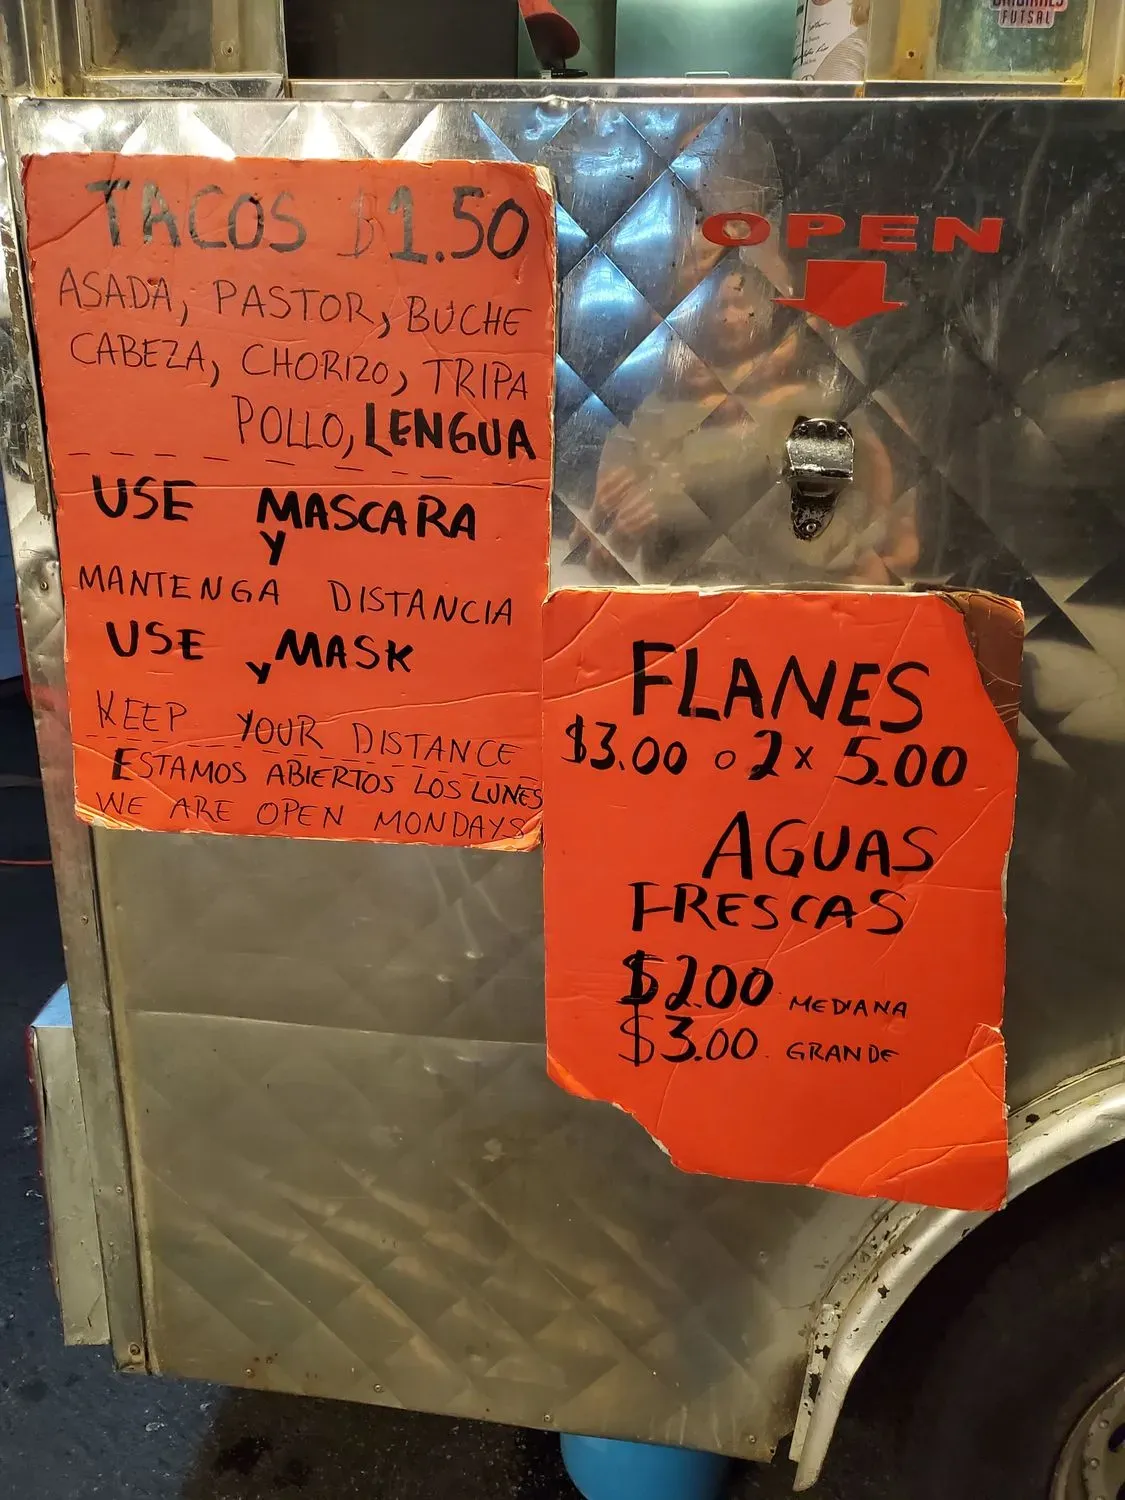 TACOS $1.50
ASADA, PASTOR, BUCHE
CABEZA, CHORIZO, TRIPA
POLLO, LENGUA
USE MASCARA
Y
MANTENGA DISTANCIA
USE MASK
Y
KEEP YOUR DISTANCE
ESTAMOS ABIERTOS LOS LUNES
WE ARE OPEN MONDAYS
OPEN
FLANES
$3.00 o 2x 5.00
AGUAS
FRESCAS
$2.00 MEDIANA
$3.00 GRANDE
FUTSAL